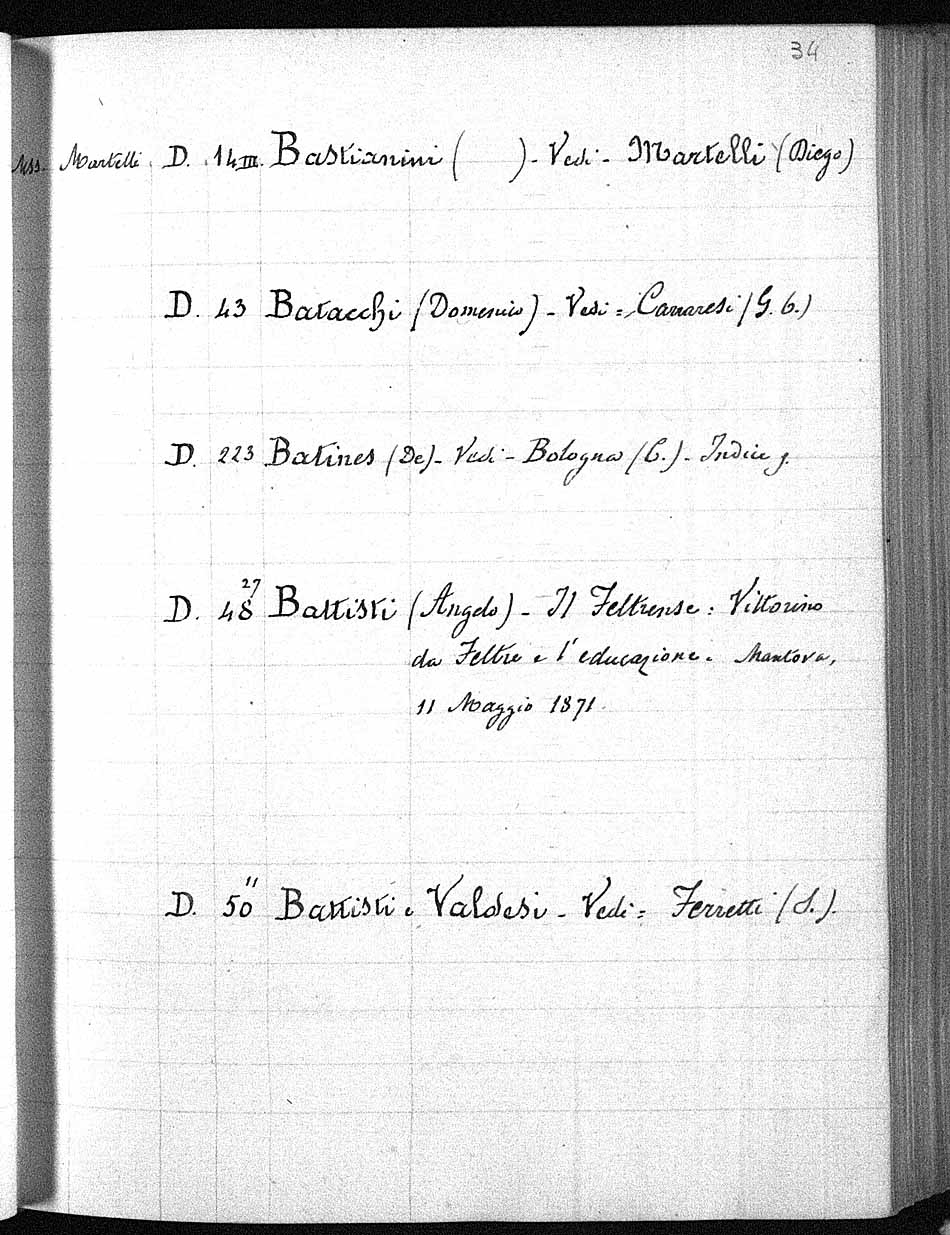 34
Mss. Martelli. D. 14 III. Bastianini ( ) - Vedi - Martelli (Diego)
D. 43 Batacchi (Domenico) - Vedi = Canaresi (G. b.)
D. 223 Batines (De) - Vedi - Bologna (C.) - Indice g.
D. 48 27 Battisti (Angelo) - Il Feltrense : Vittorino
da Feltre e l'educazione. Mantova,
11 Maggio 1871.
D. 50 11 Battisti e Valdesi - Vedi = Ferretti (S.).